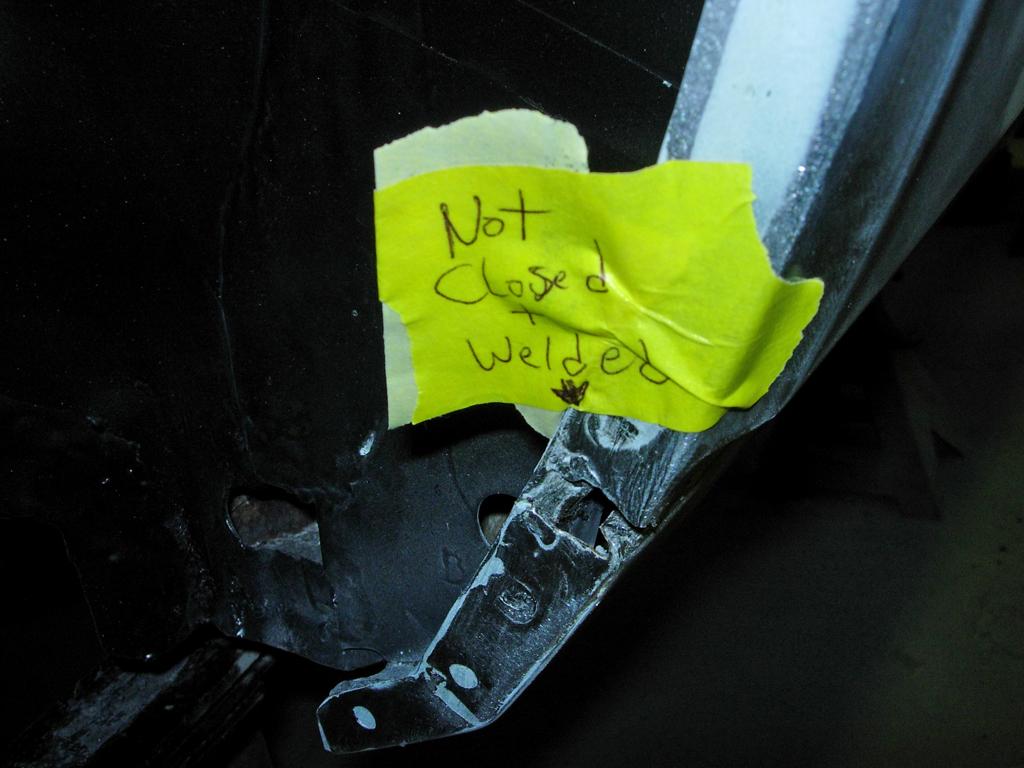 Not
Closed
+
Welded